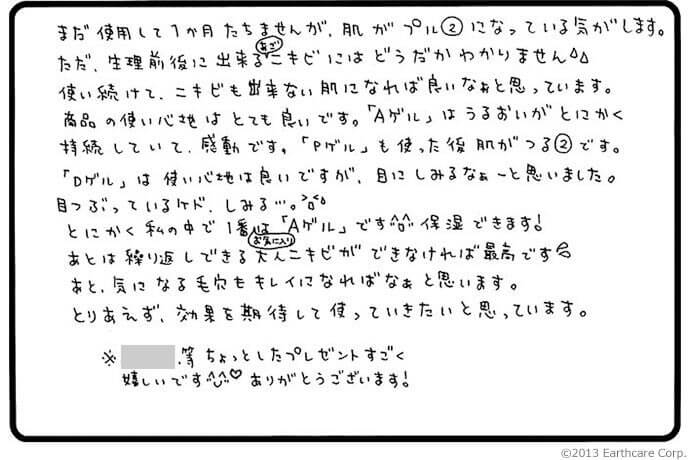 まだ使用して1か月たちませんが、肌がプル②になっている気がします。
ただ、生理前後に出来るあごニキビにはどうだかわかりません△△
使い続けて、ニキビも出来ない肌になれば良いなぁと思っています。
商品の使い心地はとても良いです。「Aゲル」はうるおいがとにかく
持続していて、感動です。「Pゲル」も使った後肌がつる②です。
「Dゲル」は使い心地は良いですが、目にしみるなぁーと思いました。
目つぶっているケド、しみる…。
とにかく私の中で1番お気に入りは「Aゲル」です^o^ 保湿できます!
あとは繰り返しできる大人ニキビができなければ最高です
あと、気になる毛穴もキレイになればなぁと思います。
とりあえず、効果を期待して使っていきたいと思っています。
※ 等ちょっとしたプレゼントすごく
嬉しいです♡ ありがとうございます!
©2013 Earthcare Corp.